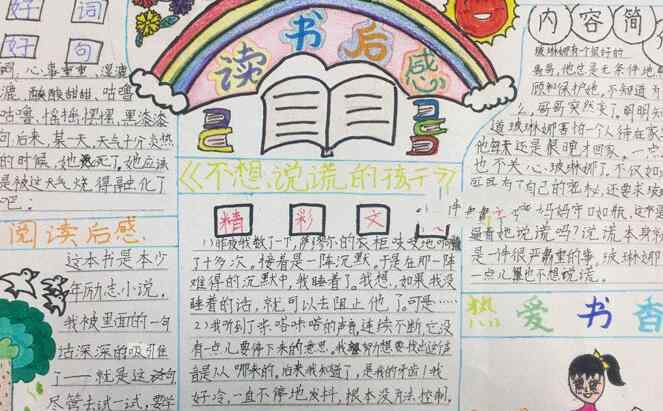 好 词
好 句
读书后感
内 容 简
心事重重、湿漉
漉、酸酸甜甜、咕噜
咕噜、摇摇摆摆、黑漆漆
后来，某一天，天气十分炎热
的时候，她死了。她应该
是被这天气烧得融化了
吧！
阅读后感
这本书是本少
年励志小说。
我被里面的一句
话深深的吸引住
了——就是这句
尽管去试一试，
《不想说谎的孩子》
精 彩 文
1）昨夜我数了一下，萨缪尔的衣柜吱吱地响
了十多次。接着是一阵沉默。于是在那一阵
难得的沉默中，我睡着了。我想，如果我没
睡着的话，就可以去阻止他了。可是……
2）我听到了咔嗒咔嗒的声音，连续不断，它没
有一点儿要停下来的意思。我努力想要找出这声
音是从哪来的，后来我知道了，是我的牙齿！我
好冷，一直不停地发抖，根本没方法控制。
玻琳娜有个很好的
哥哥，他总是无条件地
顾和保护她，不知道
么，哥哥突然变了，明明知
道玻琳娜害怕一个人待在家
他每天还是很晚才回家。一点
也不关心玻琳娜了。不仅如
且有了自己的密秘，还要求玻
妈妈守口如瓶，这不
着她说谎吗？说谎本身就
是一件很严重的事，玻琳娜
一点儿也不想说谎。
热爱书香